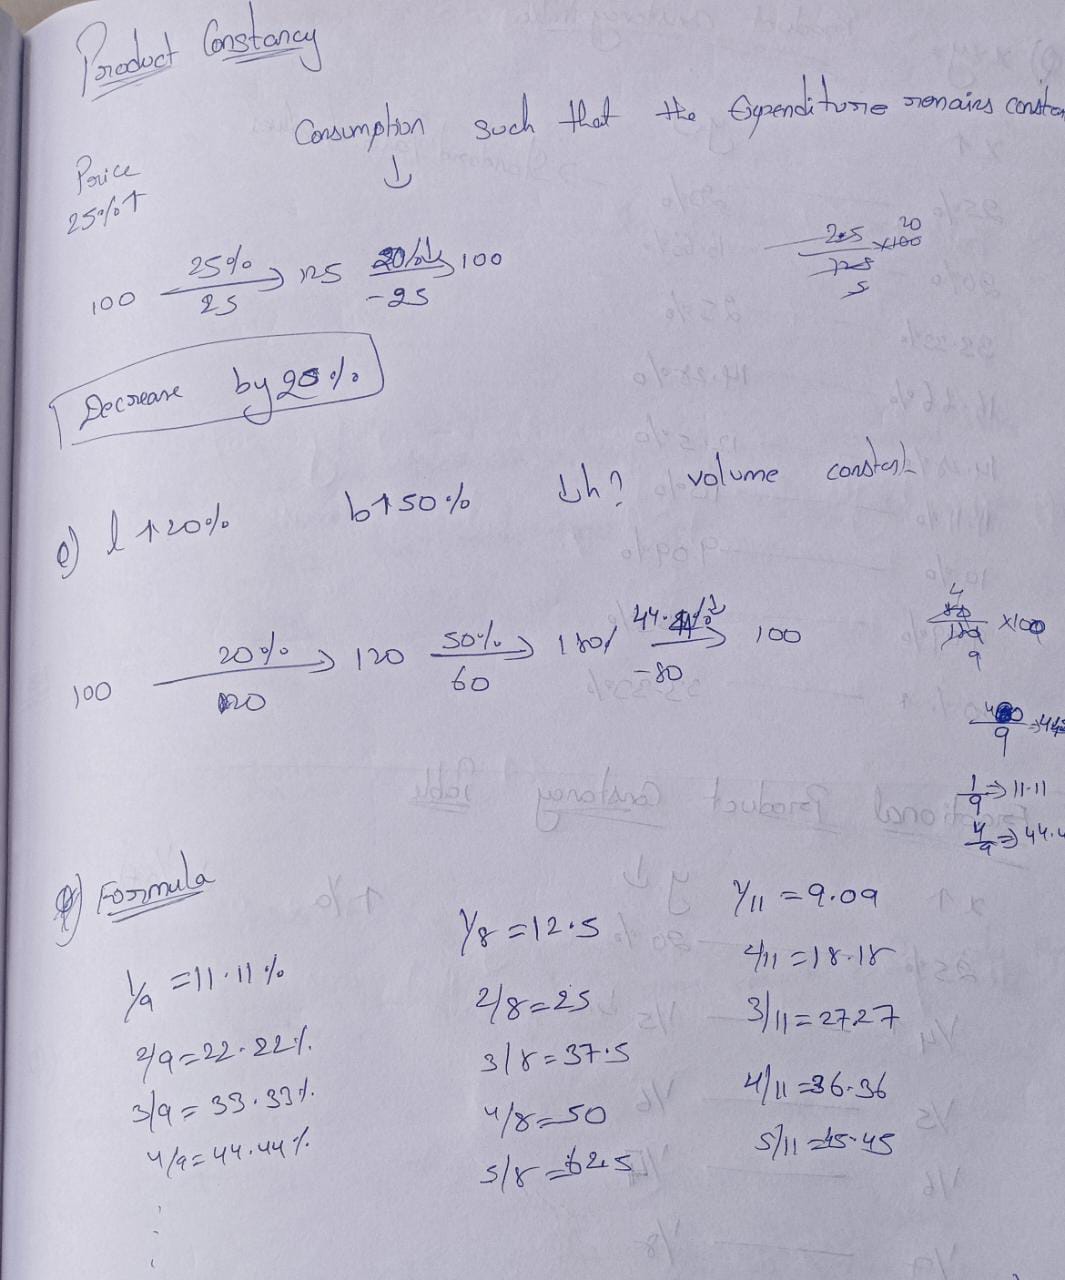 Product Constancy
Consumption such that the Expenditure remains constan
Price ↓
25% ↑
100 25% → 125 20%↓ → 100
25 -25
25/125 × 100 20
5
Decrease by 20%
e) l ↑ 20% b ↑ 50% ↓h? volume constant
100 20% → 120 50% → 180 44.44%↓ → 100
20 60 -80
80/180 × 100
4
9
400/9 ⇒ 44
1/9 ⇒ 11.11
4/9 ⇒ 44.4
f) Formula
1/9 = 11.11%
2/9 = 22.22%
3/9 = 33.33%
4/9 = 44.44%
1/8 = 12.5
2/8 = 25
3/8 = 37.5
4/8 = 50
5/8 = 62.5
1/11 = 9.09
2/11 = 18.18
3/11 = 27.27
4/11 = 36.36
5/11 = 45.45